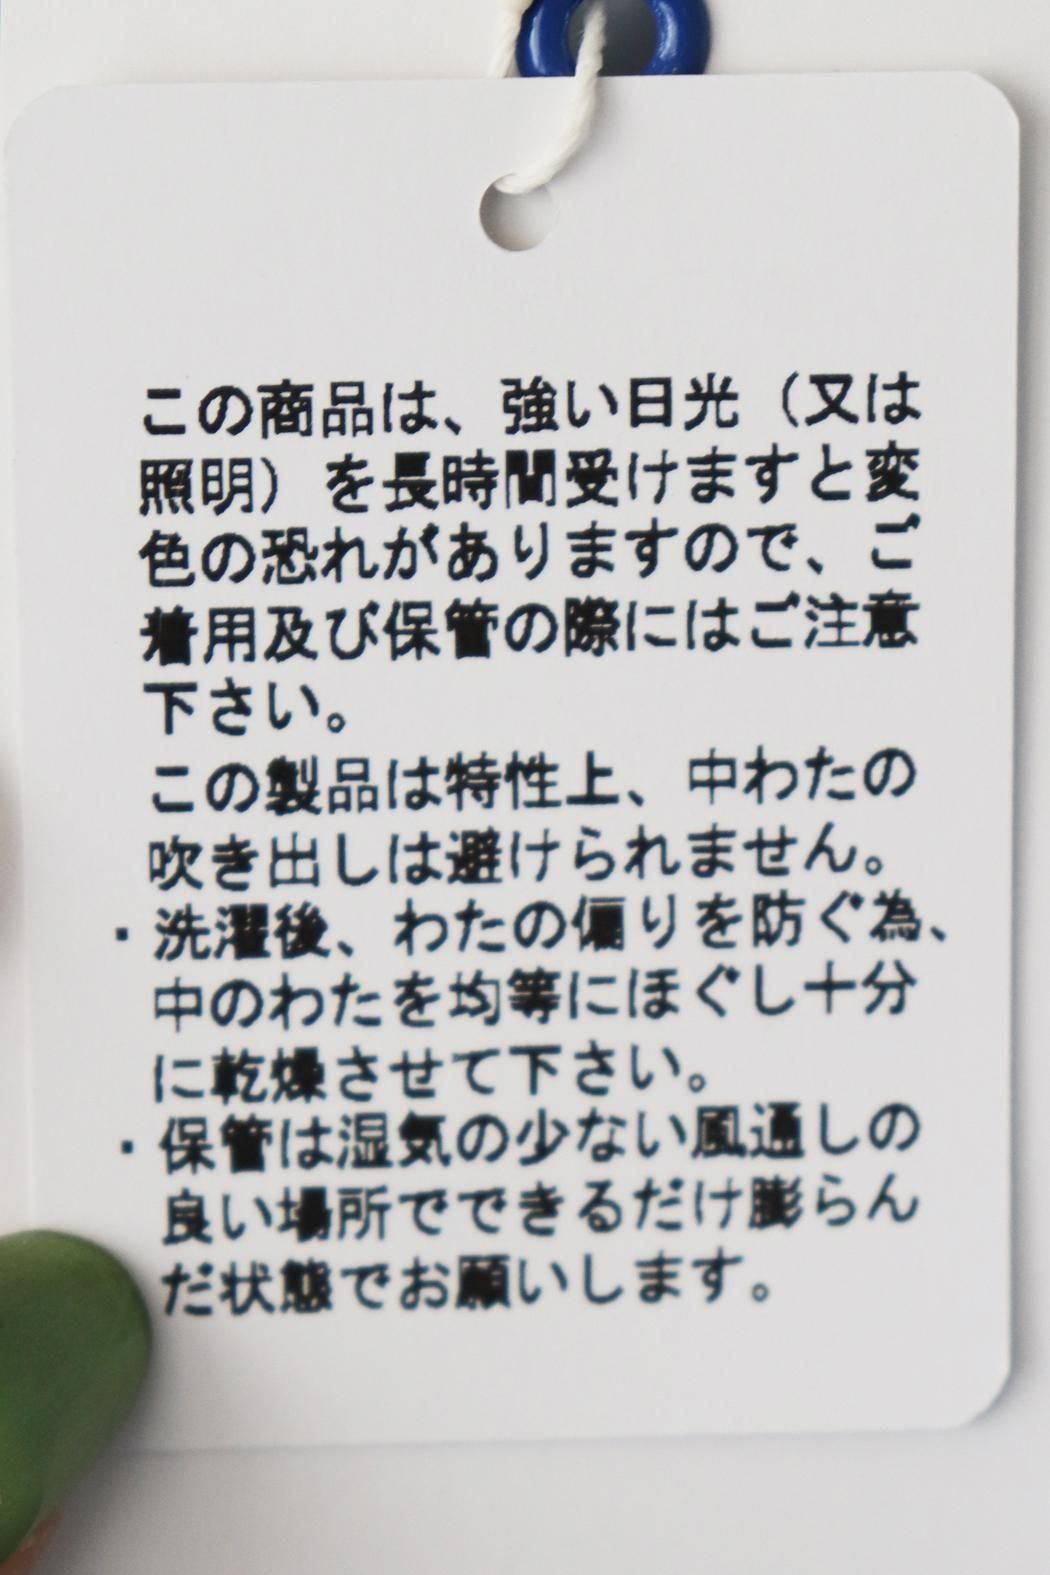 この商品は、強い日光（又は
照明）を長時間受けますと変
色の恐れがありますので、ご
着用及び保管の際にはご注意
下さい。
この製品は特性上、中わたの
吹き出しは避けられません。
・洗濯後、わたの偏りを防ぐ為、
中のわたを均等にほぐし十分
に乾燥させて下さい。
・保管は湿気の少ない風通しの
良い場所でできるだけ膨らん
だ状態でお願いします。